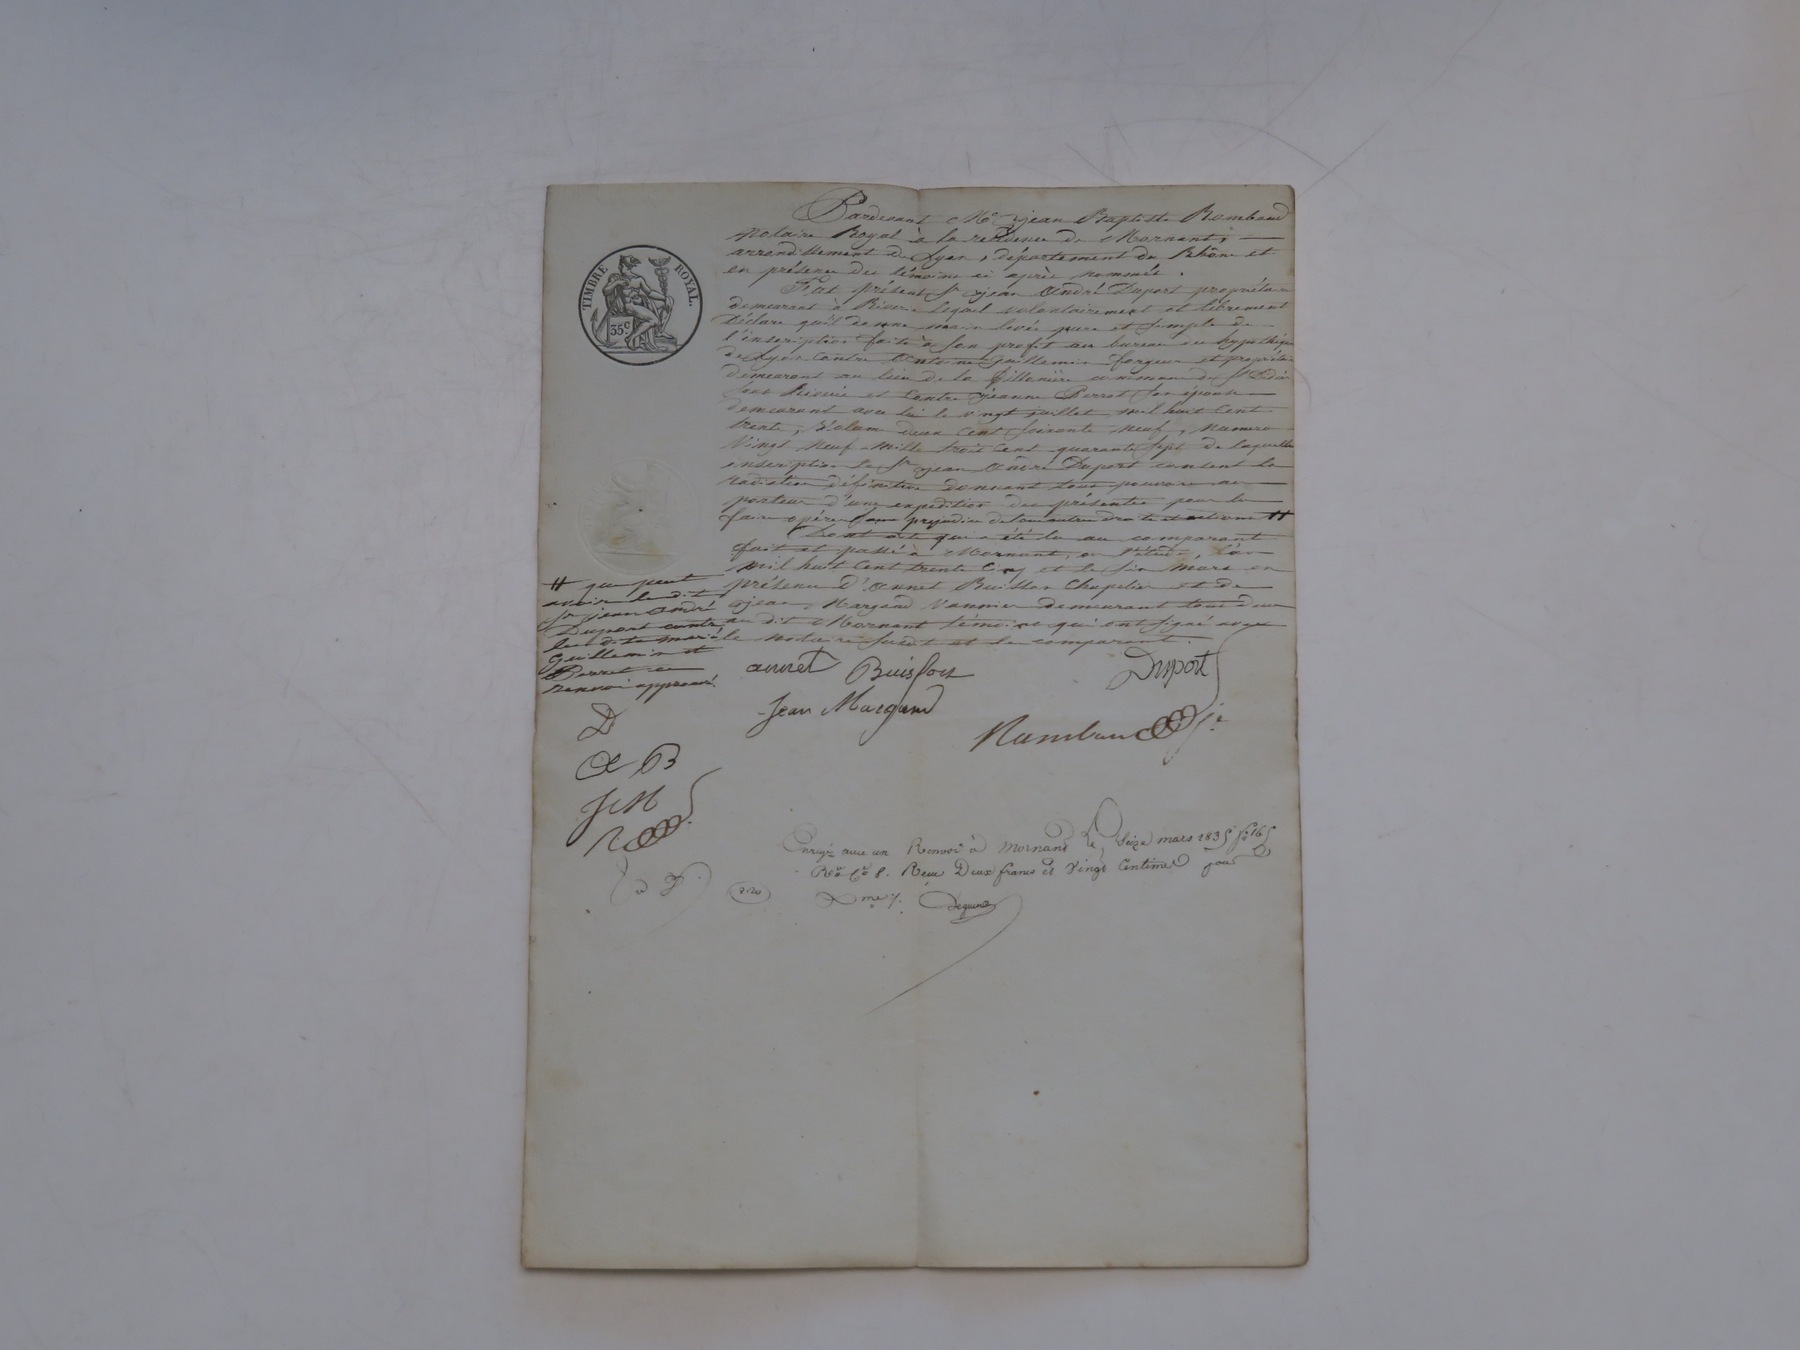 TIMBRE ROYAL.
35 c.
Pardevant Me jean Baptiste Rambaud
notaire Royal à la residence de Mornant,
arrondissement de Lyon, département du Rhône et
en présence des témoins ci après nommés.
Fut présent Sr jean André Duport propriétaire
demeurant à Riverie lequel volontairement et librement
déclare qu'il donne main levée pure et simple de
l'inscription faite à son profit au bureau des hypothèques
de Lyon contre Antoine Guillemin forgeur et propriétaire
demeurant au lieu de la commune de St Didier
sous Riverie et contre jeanne Perret son épouse
demeurant avec lui le vingt juillet mil huit cent
trente, volume deux cent soixante neuf, numero
vingt neuf mille trois cent quarante sept de laquelle
inscription le Sr jean André Duport consent la
radiation définitive donnant tous pouvoirs au
porteur d'une expédition des présentes pour la
faire opérer sans prejudice de tous autres droits et actions #
Dont acte qui a été lu au comparant
fait et passé à Mornant, en l'étude, l'an
mil huit cent trente cinq et le six mars en
présence d'Annet Buisson Chapelier et de
jean Margand vannier demeurant tous deux
au dit Mornant témoins qui ont signé avec
le notaire susdit et le comparant.
# que peut
avoir le dit
Sr jean André
Duport contre
les dits mariés
Guillemin et
Perret ce
renvoi approuvé.
annet Buisson
Duport
Jean Margand
Rambaud
D
A B
J M
R
Enregé avec un Renvoi à Mornant le Seize mars 1835 fo 165
Ro Ce 8. Reçu Deux francs et Vingt Centimes pour
2.20